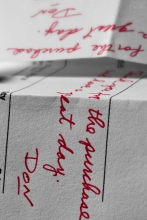 for the purchase
a great day.
Don
the purchase
eat day.
Don